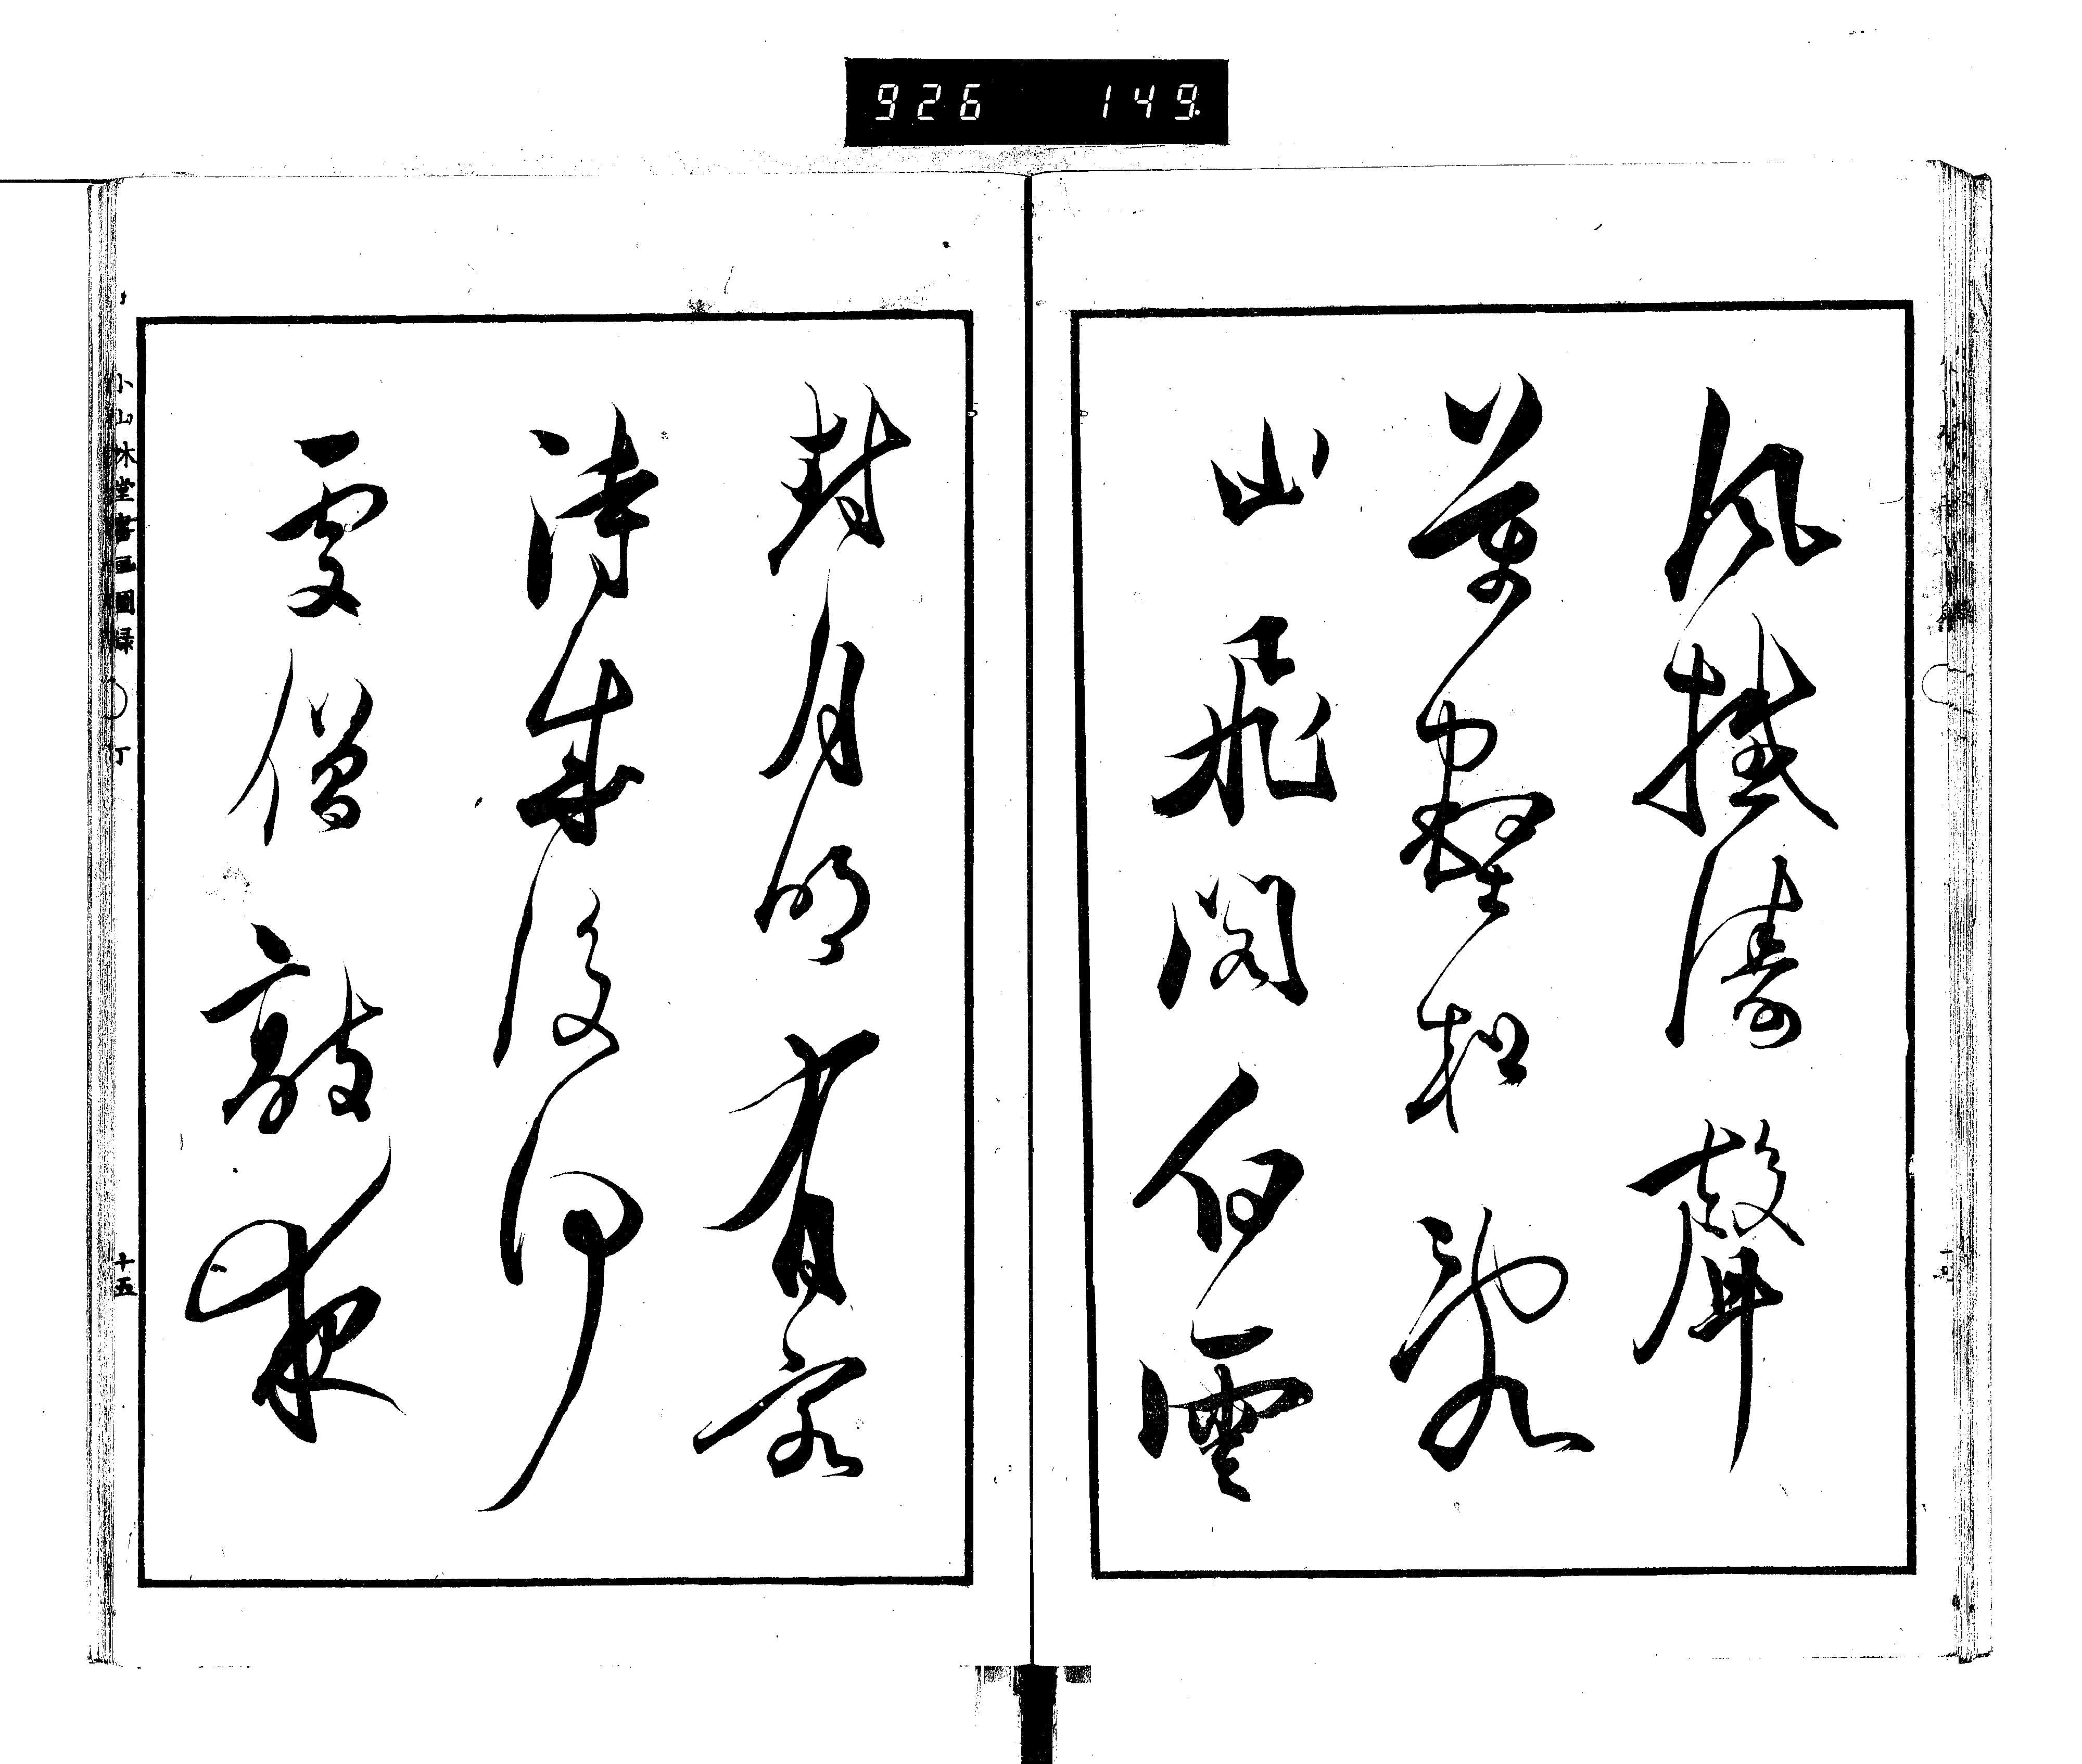 926 149.
風捲濤聲
萬壑松亂
山飛閣白雲
封月明有客
詩成後何
處僧敲夜
小山林堂書画圖録 丁 十五